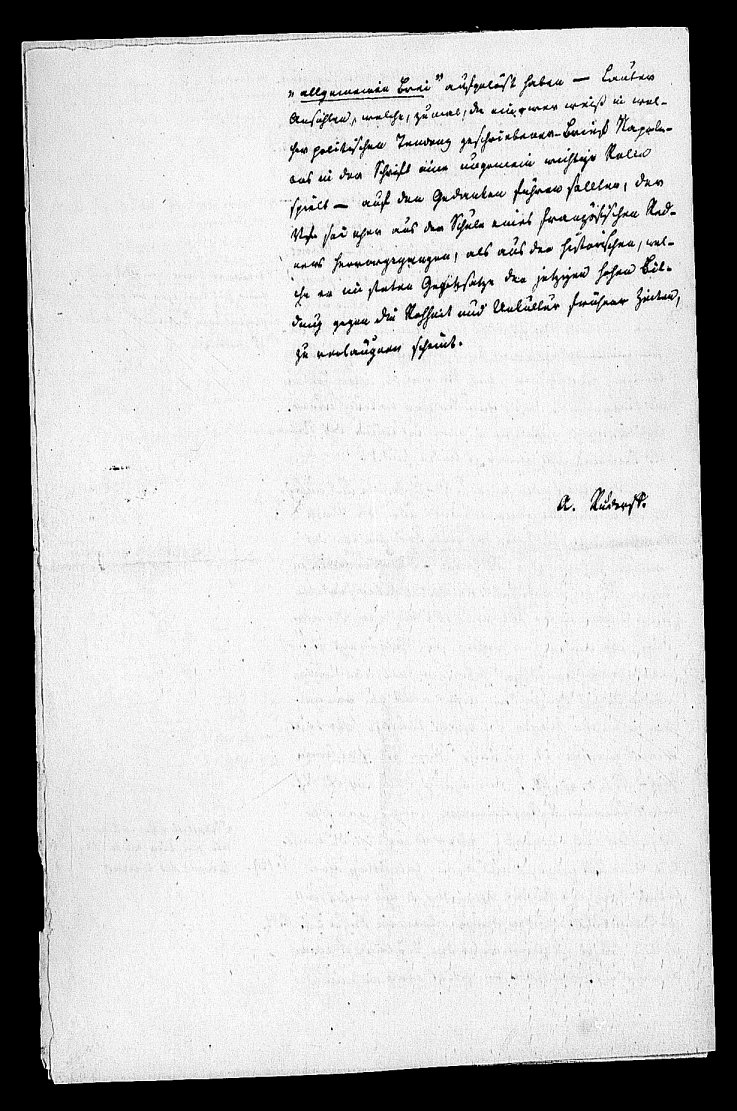 „allgemeinen Brei“ aufgelöst haben — lauter
Ansichten, welche, zumal, da ein, wer weiß in wel-
cher politischen Tendenz geschriebener Brief Napole-
ons in der Schrift eine ungemein wichtige Rolle
spielt — auf den Gedanken führen sollten, der
Vfr sei eher aus der Schule eines französischen Red-
ners hervorgegangen, als aus der historischen, wel-
che er im steten Gegensatze der jetzigen hohen Bil-
dung gegen die Rohheit und Unkultur früherer Zeiten,
zu verläugnen scheint.
A.